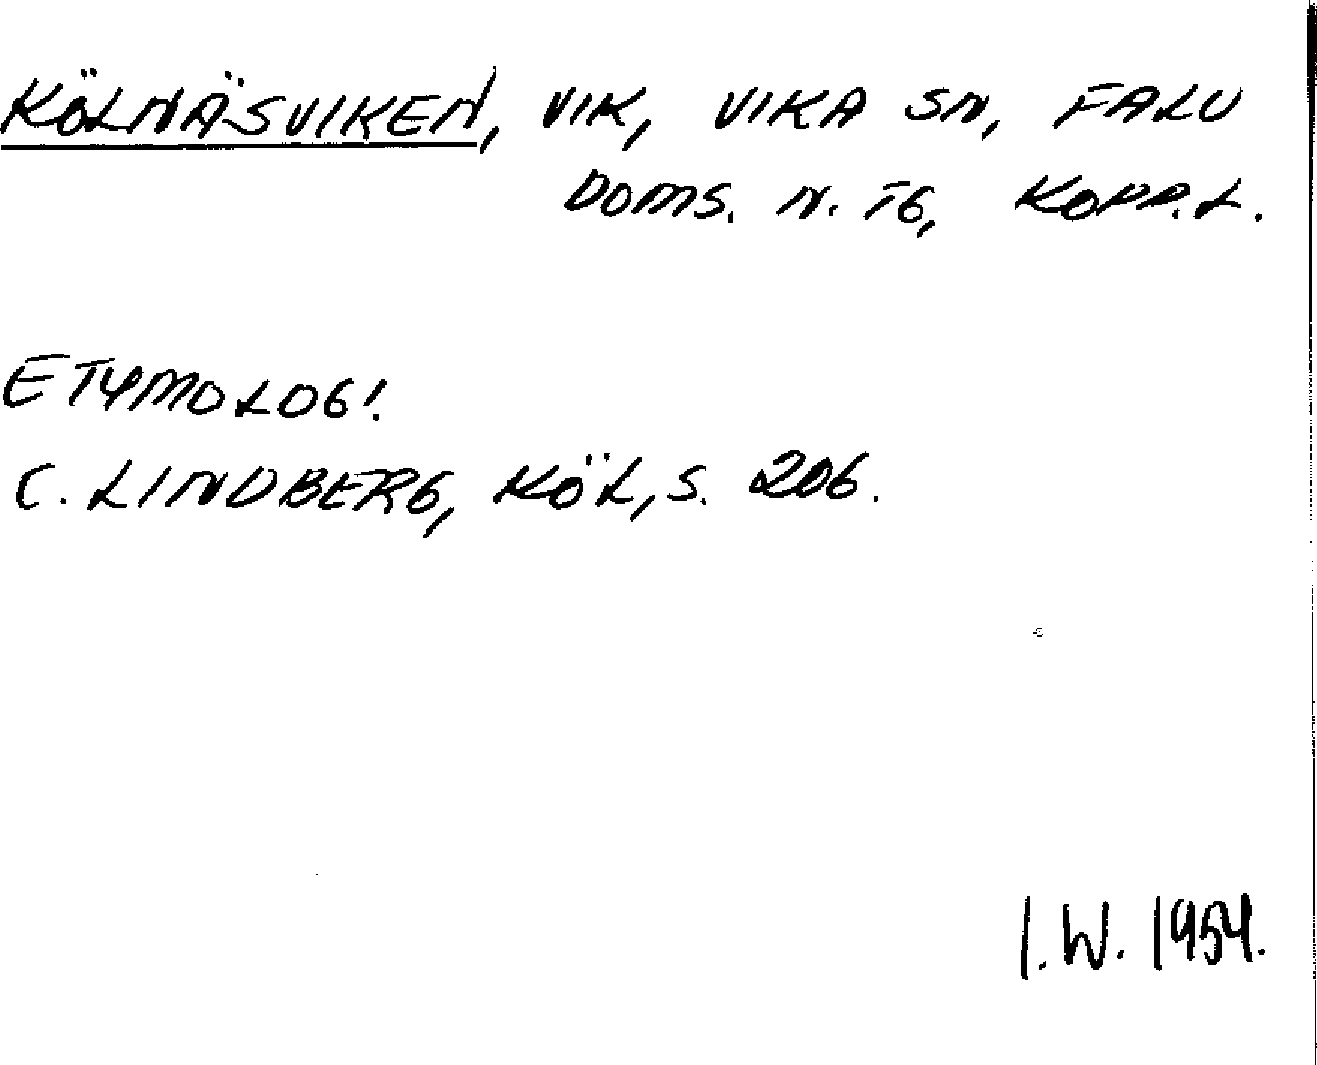 KÖLNÄSVIKEN, VIK, VIKA SN, FALU
DOMS. N. TG, KOPP.L.
ETYMOLOGI.
C. LINDBERG, KÖL, S. 206.
I.W. 1954.